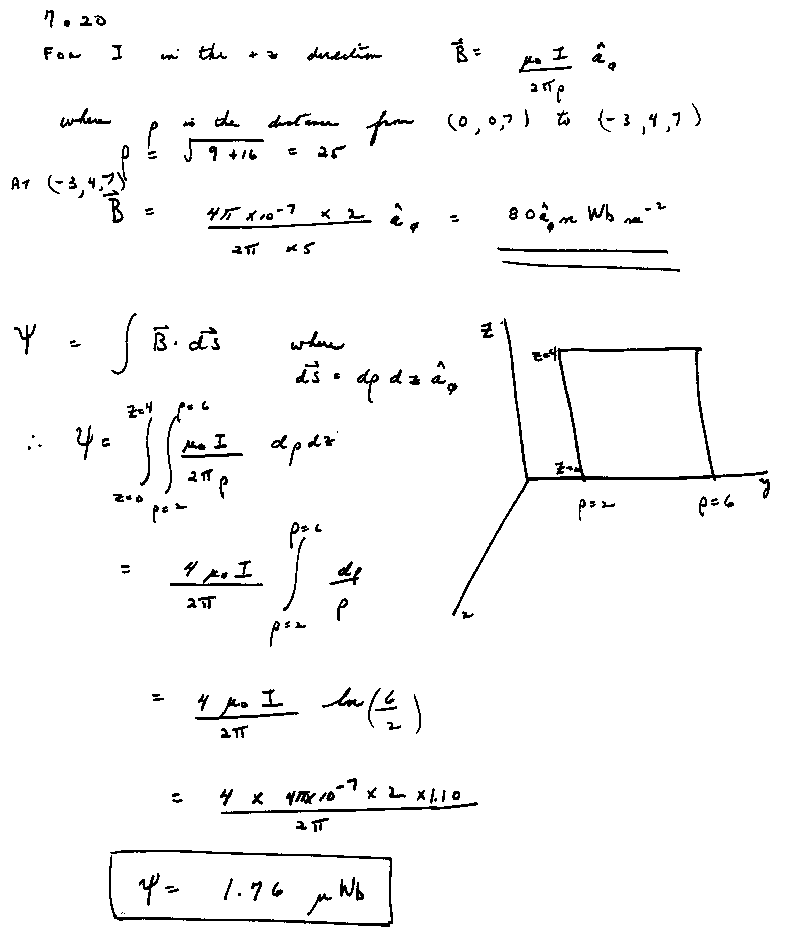 7.20
For I in the +z direction B⃗ = μ₀ I / 2πρ â_φ
where ρ is the distance from (0, 0, 7) to (-3, 4, 7)
ρ = √(9+16) = 25
At (-3,4,7)
B⃗ = 4π × 10⁻⁷ × 2 / 2π × 5 â_φ = 80 â_φ n Wb m⁻²
Ψ = ∫ B⃗ · ds⃗ where
ds⃗ = dρ dz â_φ
∴ Ψ = ∫_{z=0}^{z=4} ∫_{ρ=2}^{ρ=6} μ₀ I / 2πρ dρ dz
= 4 μ₀ I / 2π ∫_{ρ=2}^{ρ=6} dρ / ρ
= 4 μ₀ I / 2π ln(6/2)
= 4 × 4π×10⁻⁷ × 2 × 1.10 / 2π
Ψ = 1.76 μ Wb
z
z=4
z=0
ρ=2 ρ=6 y